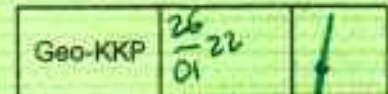 Geo-KKP 26/01 22